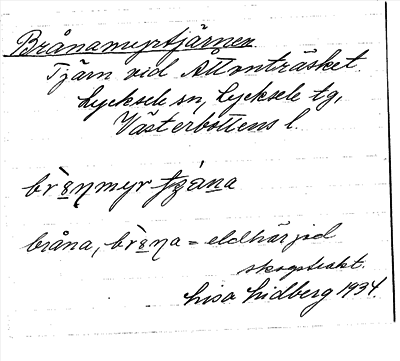 Brånamyrtjärnen
Tjärn vid Åttonträsket.
Lycksele sn, Lycksele tg,
Västerbottens l.
brånа, = eldhärjid
skogstrakt.
Lisa Lidberg 1934.